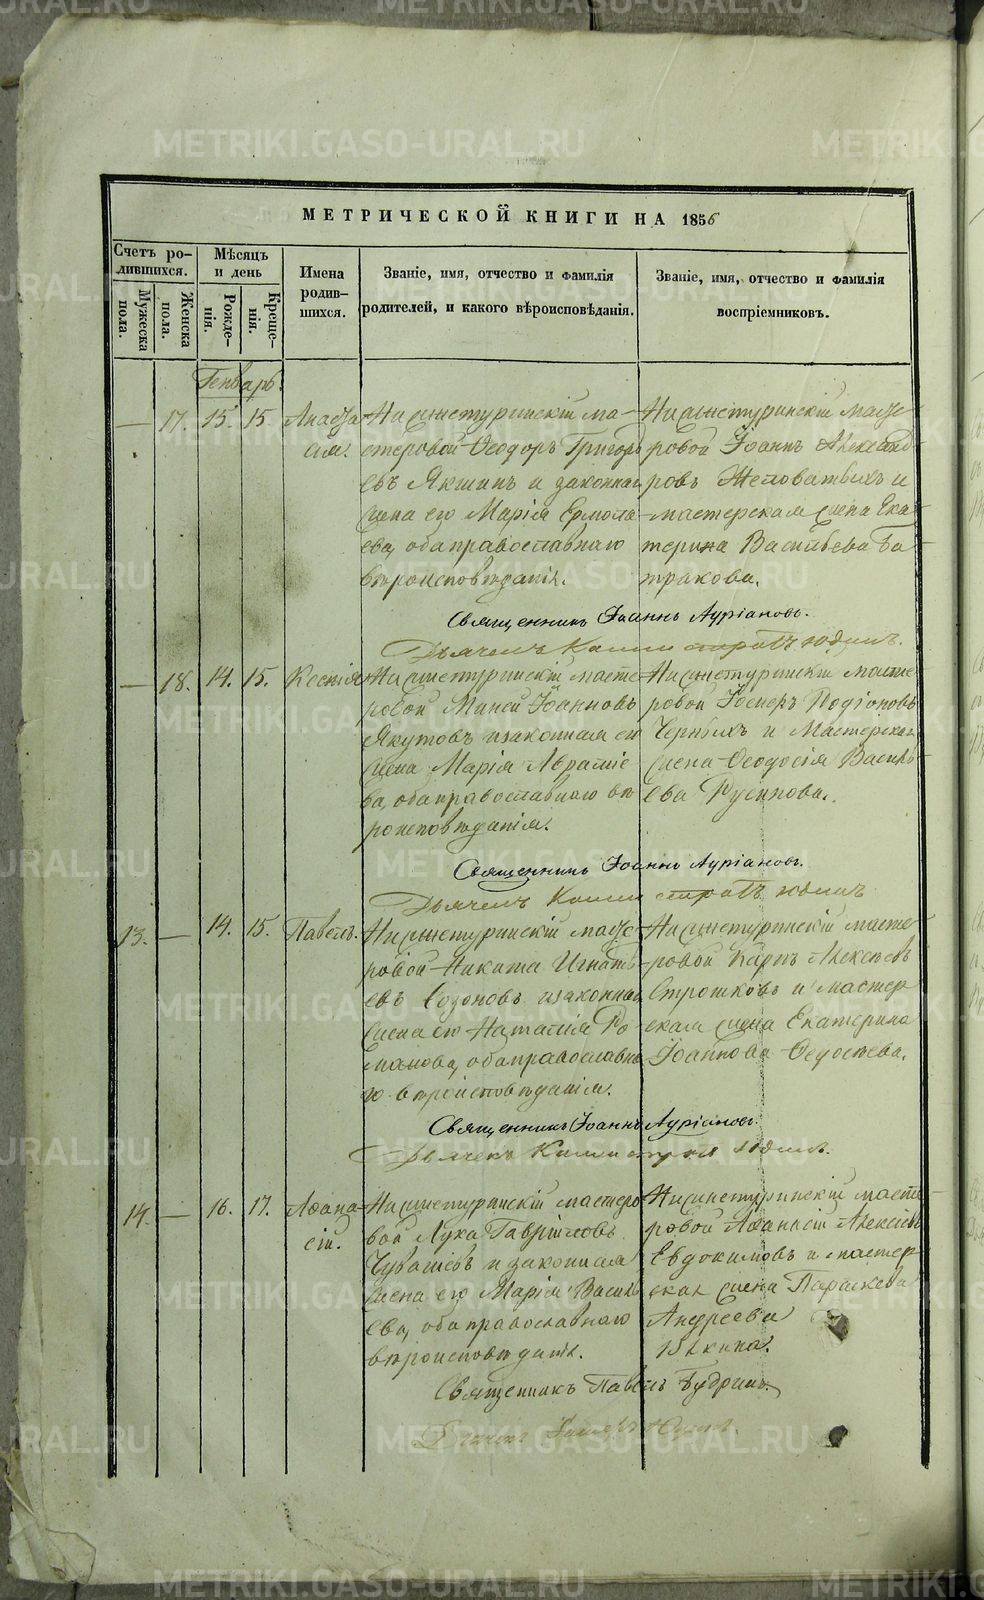 METRIKI.GASO-URAL.RU
МЕТРИЧЕСКОЙ КНИГИ НА 1856
Счетъ ро-
дившихся.
Мужеска
пола.
Женска
пола.
Мѣсяцъ
и день
Рожде-
нія.
Креще-
нія.
Имена
родив-
шихся.
Званіе, имя, отчество и фамилія
родителей, и какого вѣроисповѣданія.
Званіе, имя, отчество и фамилія
воспріемниковъ.
Генварь.
— 17. 15. 15.
Нижнетуринскій ма-
стеровой Ѳеодоръ Григорь
евъ Якшинъ и законная
жена его Марія Ермола
ева, оба православнаго
вѣроисповѣданія.
Нижнетуринскій масте
ровой Іоаннъ Александ
ровъ и
мастерская жена Ека
терина Васильева Ба
тракова.
Священникъ Іоаннъ Ауріановъ.
Дьячекъ
— 18. 14. 15.
Ксенія
Нижнетуринскій масте
ровой Миней Іоанновъ
Якутовъ и законная его
жена Марія Аврамие
ва, оба православнаго вѣ
роисповѣданія.
Нижнетуринскій масте
ровой Родіоновъ
Черныхъ и Мастерская
жена Ѳеодосія Василь
ева Русинова.
Священникъ Іоаннъ Ауріановъ.
Дьячекъ
13. — 14. 15.
Павелъ.
Нижнетуринскій масте
ровой Никита Игнать
евъ Созоновъ и законная
жена его Наталія Ро
манова, оба православна
го вѣроисповѣданія.
Нижнетуринскій масте
ровой Карпъ Алексѣевъ
Строшковъ и мастер
ская жена Екатерина
Іоаннова Ѳедосѣева.
Священникъ Іоаннъ Ауріановъ.
Дьячекъ
14. — 16. 17.
Аѳана-
сій.
Нижнетуринскій мастеро
вой Лука Гавріиловъ
Чувашевъ и законная
жена его Марія Василь
ева, оба православнаго
вѣроисповѣданія.
Нижнетуринскій масте
ровой Аѳанасій Алексѣевъ
Евдокимовъ и мастер
ская жена Параскева
Андреева
Священникъ Павелъ Будринъ.